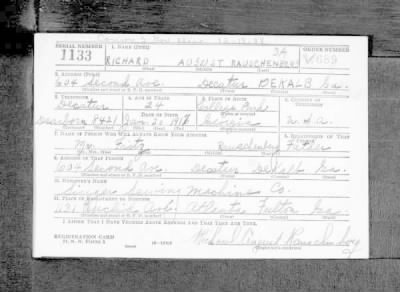 SERIAL NUMBER 1. NAME (Print) ORDER NUMBER
1133 RICHARD AUGUST RAUSCHENBERG
2. ADDRESS (Print)
604 Second Ave. Decatur DEKALB Ga.
3. TELEPHONE 4. AGE IN YEARS 5. PLACE OF BIRTH 6. COUNTRY OF CITIZENSHIP
Decatur 24 College Park
Dearborn 8421 DATE OF BIRTH Georgia U.S.A.
7. NAME OF PERSON WHO WILL ALWAYS KNOW YOUR ADDRESS 8. RELATIONSHIP OF THAT PERSON
Mr. Fritz Rauschenberg Father
9. ADDRESS OF THAT PERSON
604 Second Ave. Decatur DeKalb Ga.
10. EMPLOYER'S NAME
Singer Sewing Machine Co.
11. PLACE OF EMPLOYMENT OR BUSINESS
Atlanta Fulton Ga.
I AFFIRM THAT I HAVE VERIFIED ABOVE ANSWERS AND THAT THEY ARE TRUE.
REGISTRATION CARD
D. S. S. FORM 1
Richard August Rauschenberg